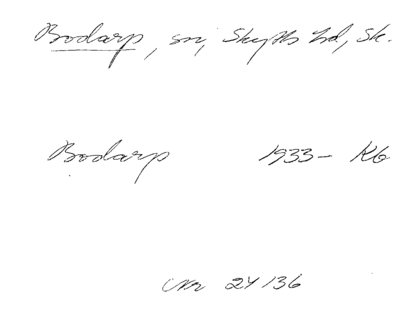 Bodarp, sn, Skytts hd, Sk.
Bodarp 1933– KB
24/36